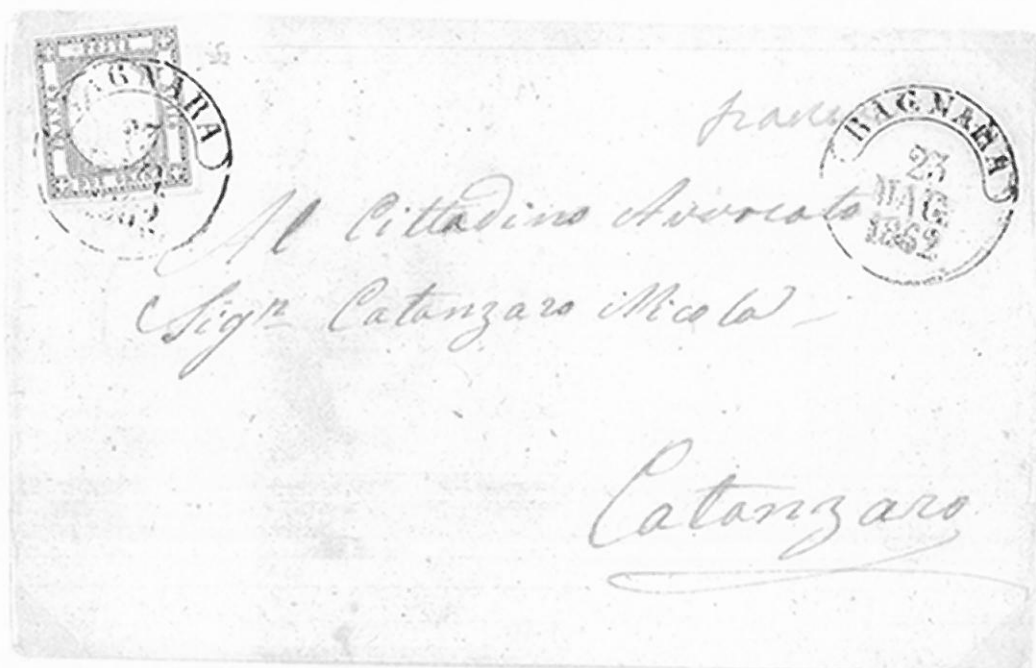 BAGNARA
1862
BAGNARA
23
MAG
1862
Al Cittadino Avvocato
Sigr Catanzaro Nicola
Catanzaro